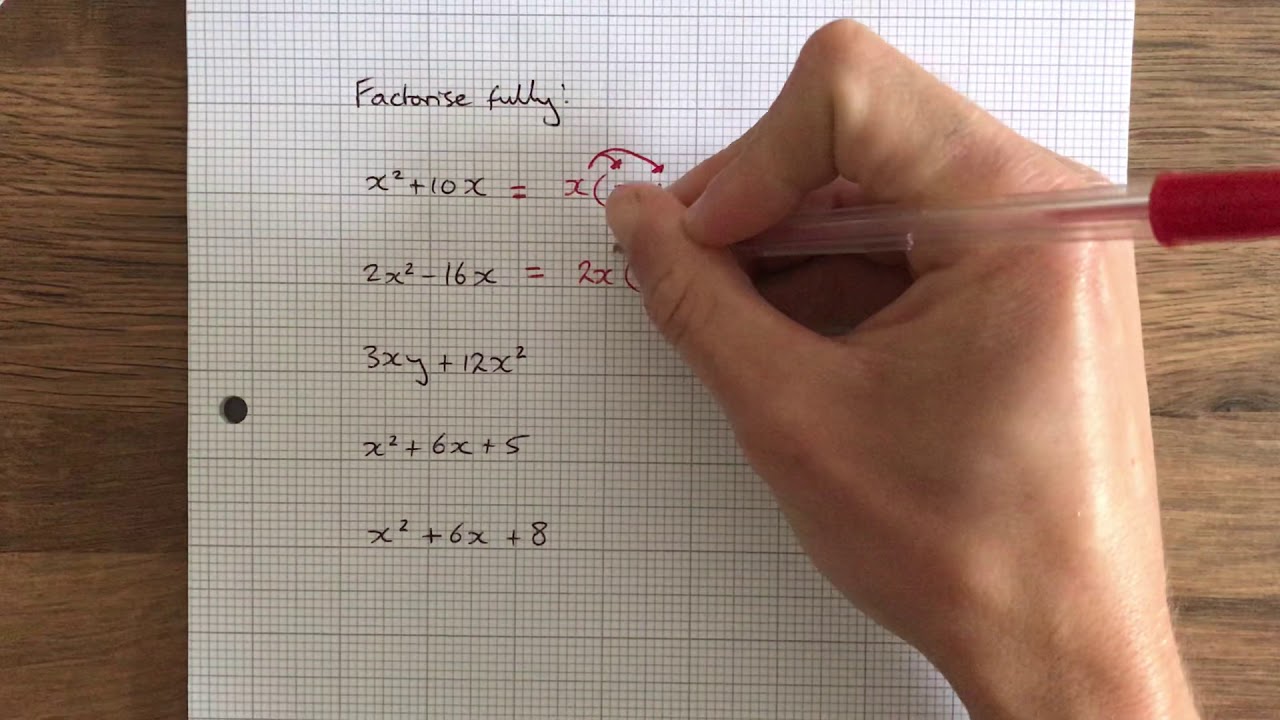 Factorise fully:
x² + 10x = x(
2x² - 16x = 2x(
3xy + 12x²
x² + 6x + 5
x² + 6x + 8